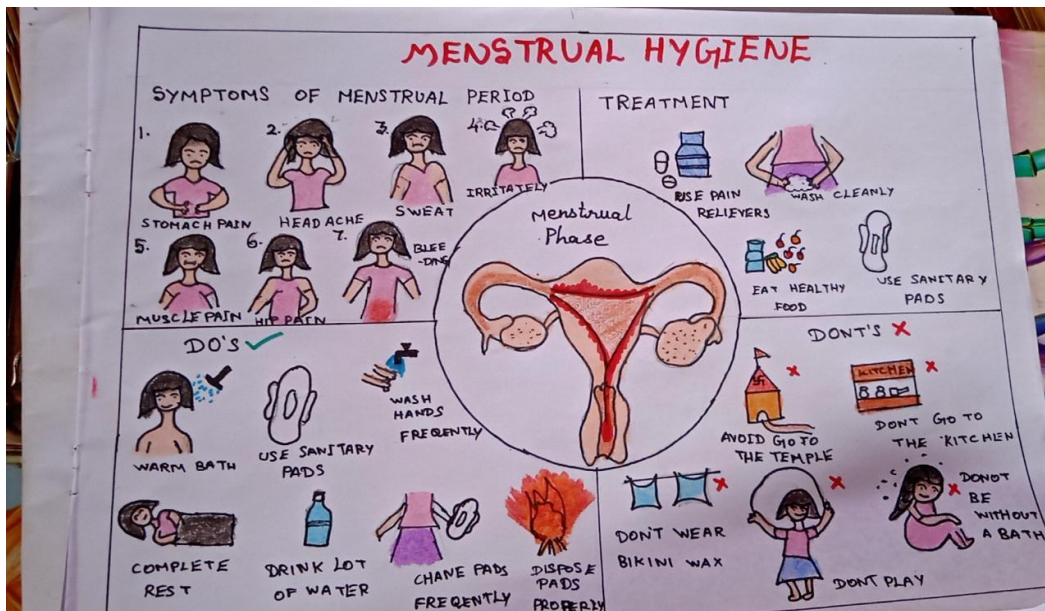 MENSTRUAL HYGIENE
SYMPTOMS OF MENSTRUAL PERIOD
1.
STOMACH PAIN
2.
HEADACHE
3.
SWEAT
4.
IRRITATELY
5.
MUSCLE PAIN
6.
HIP PAIN
7.
BLEE
-DING
TREATMENT
USE PAIN
RELIEVERS
WASH CLEANLY
EAT HEALTHY
FOOD
USE SANITARY
PADS
Menstrual
Phase
DO'S
WARM BATH
USE SANITARY
PADS
WASH
HANDS
FREQUENTLY
COMPLETE
REST
DRINK LOT
OF WATER
CHANE PADS
FREQENTLY
DISPOSE
PADS
PROPERLY
DONT'S
AVOID GO TO
THE TEMPLE
KITCHEN
DONT GO TO
THE KITCHEN
DON'T WEAR
BIKINI WAX
DONT PLAY
DONOT
BE
WITHOUT
A BATH